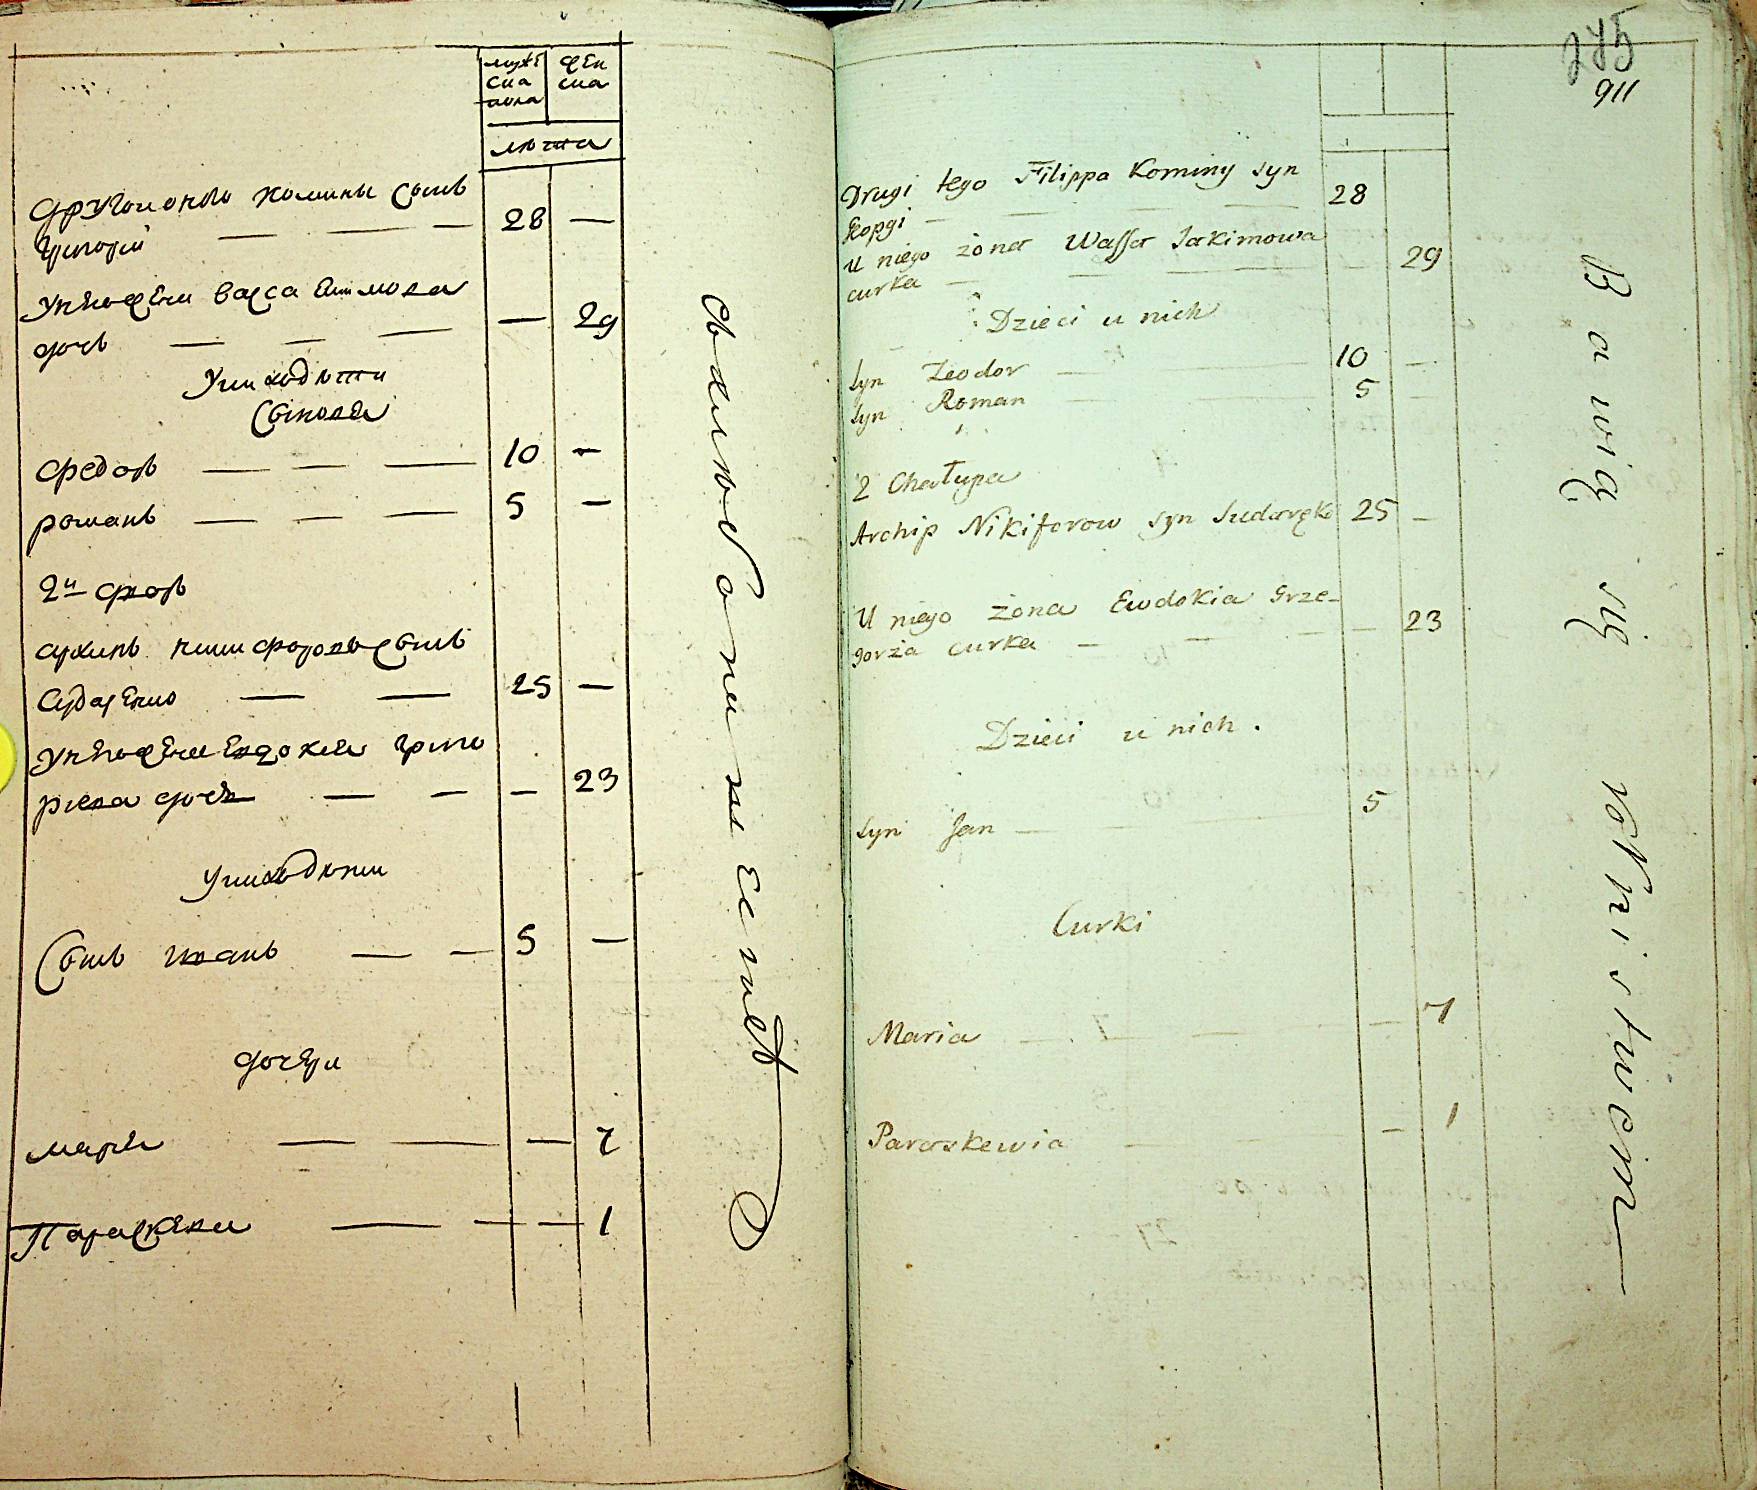 муже
ска
пола
жен
ска
лета
Другои оного комины сынъ
28 —
григорей
унего жена васса екимова
дочь — 29
Унихъ дети
Сынове
федоръ 10 —
романъ 5 —
2й дворъ
архипъ никифоровъ сынъ
Сударенко 25 —
унего жена евдокия григо
риева дочь — 23
унихъ дети
Сынъ иванъ 5 —
дочери
мария — 7
Параскевия — 1
275
911
Drugi tego Filippa Kominy syn 28
U niego żona Wassa Jakimowa 29
curka
Dzieci u nich
syn Teodor 10 —
syn Roman 5
2 Chałupa
Archip Nikiforow syn Sudaręko 25 —
U niego żona Ewdokia Grze-
gorża curka — 23
Dzieci u nich.
syn Jan 5
Curki
Maria — 7
Paraskewia — 1
Bawią się